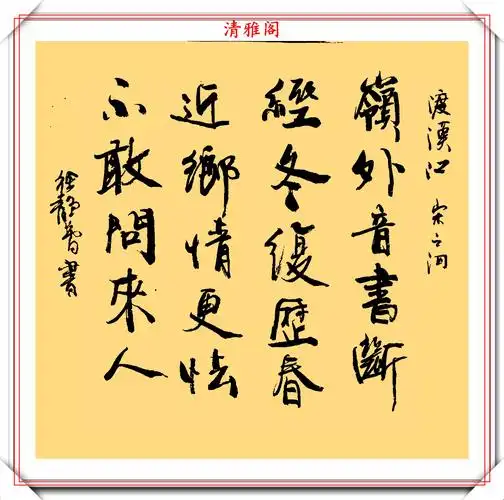 清雅阁
渡漢江 宋之问
嶺外音書斷
經冬復歷春
近鄉情更怯
不敢問來人
徐静蕾書